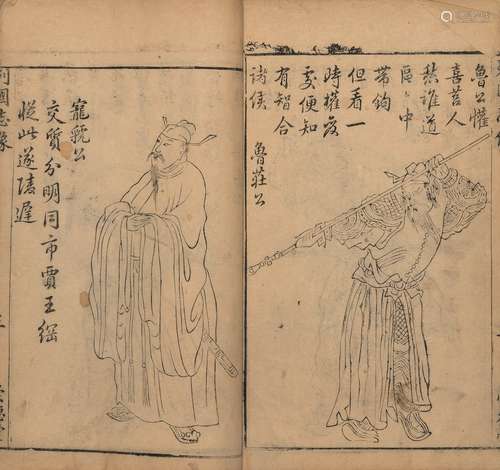 魯公懽
喜莒人
愁誰道
區〻中
帶鉤
但看一
時權變
處便知
有智合
諸侯
魯莊公
寵虢公
交質分明同市賈王綱
從此遂陵遲
列國志像